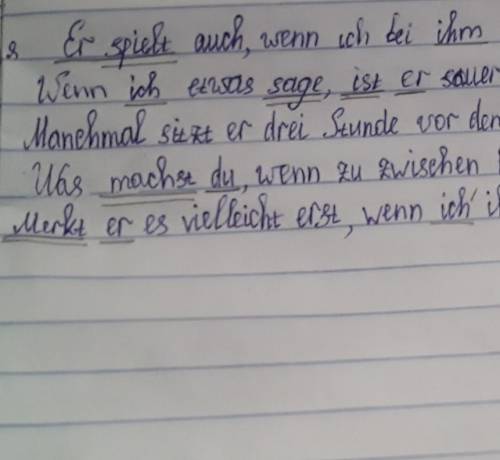 Er spielt auch, wenn ich bei ihm
Wenn ich etwas sage, ist er sauer
Manchmal sitzt er drei Stunde vor dem
Was machst du, wenn zu zwischen
Merkt er es vielleicht erst, wenn ich